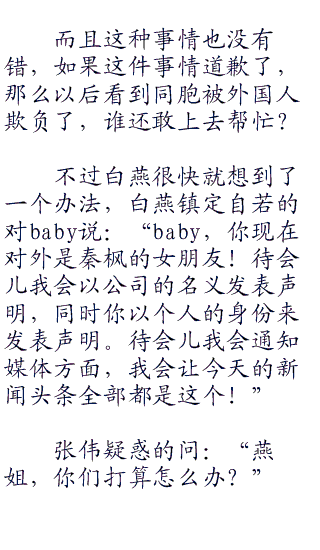 而且这种事情也没有
错，如果这件事情道歉了，
那么以后看到同胞被外国人
欺负了，谁还敢上去帮忙？
不过白燕很快就想到了
一个办法，白燕镇定自若的
对baby说：“baby，你现在
对外是秦枫的女朋友！待会
儿我会以公司的名义发表声
明，同时你以个人的身份来
发表声明。待会儿我会通知
媒体方面，我会让今天的新
闻头条全部都是这个！”
张伟疑惑的问：“燕
姐，你们打算怎么办？”